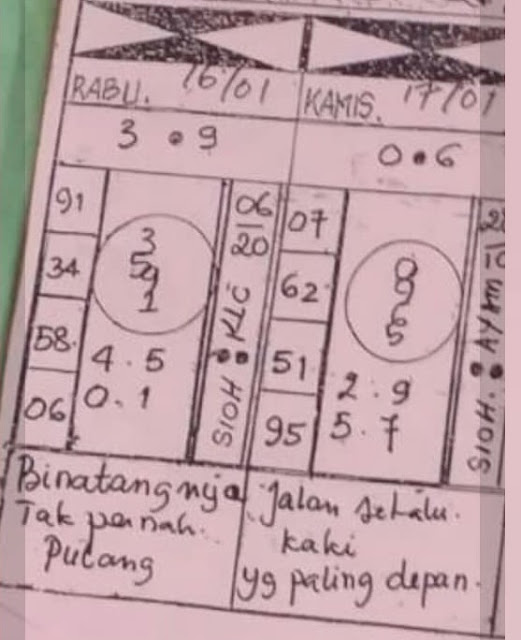 RABU. 16/01
3 • 9
91
34
58.
06
3
5
9
1
4 . 5
0 . 1
06
20
SIOH : KLC
Binatangnya
Tak pernah.
Pulang
KAMIS. 17/01
0 • 6
07
62
51
95
6
5
2 . 9
5 . 7
SIOH : AYAM
Jalan selalu.
kaki
yg paling depan.